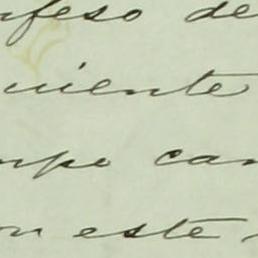 nfeso de
uiente
mpo cam
on este